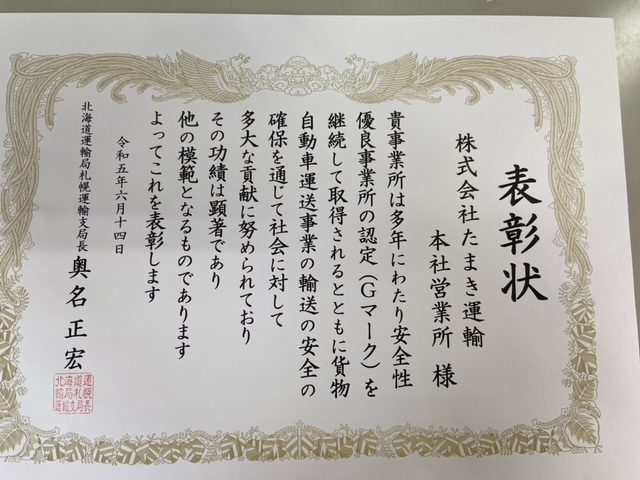 表彰状
株式会社たまき運輸
本社営業所 様
貴事業所は多年にわたり安全性
優良事業所の認定（Gマーク）を
継続して取得されるとともに貨物
自動車運送事業の輸送の安全の
確保を通じて社会に対して
多大な貢献に努められており
その功績は顕著であり
他の模範となるものであります
よってこれを表彰します
令和五年六月十四日
北海道運輸局札幌運輸支局長 奥名正宏